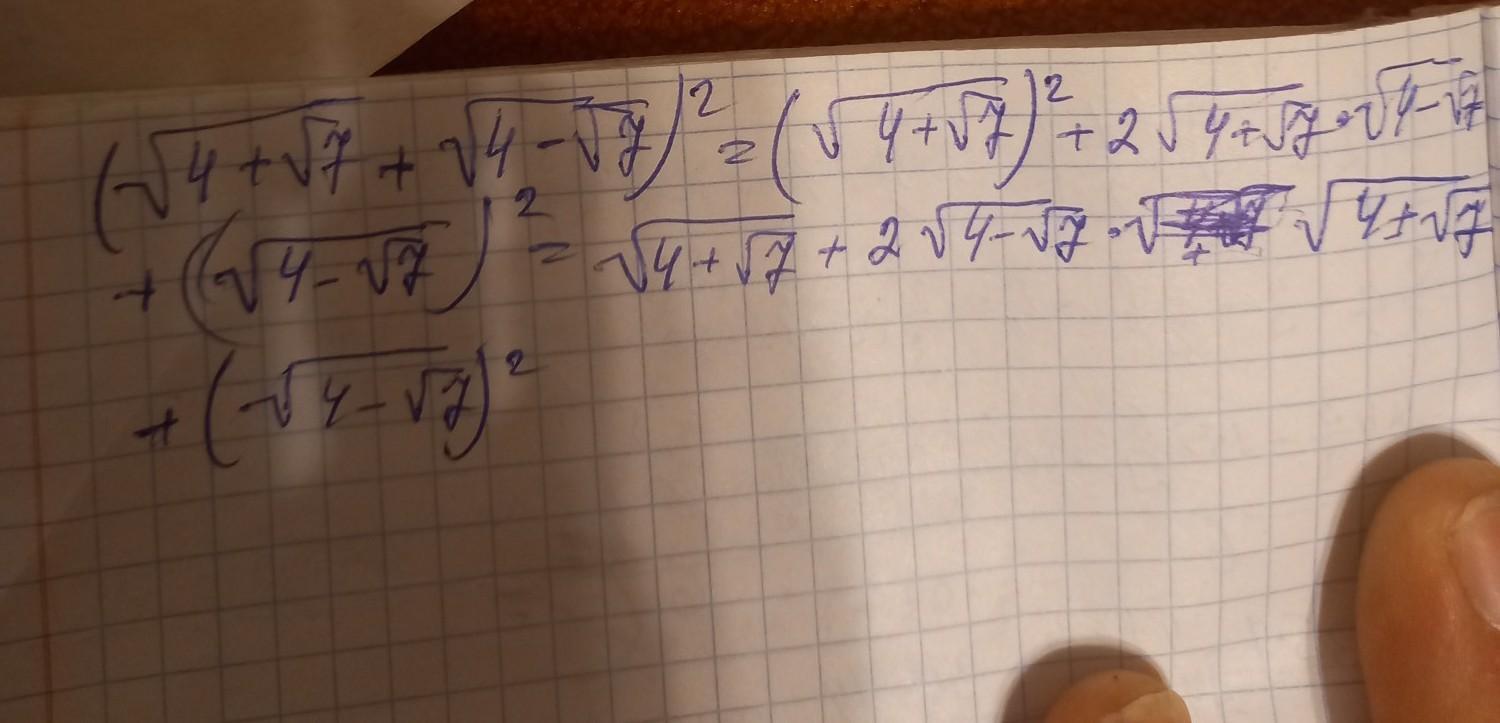 (√(4+√7) + √(4-√7))² = (√(4+√7))² + 2√(4+√7) · √(4-√7)
+ (√(4-√7))² = √(4+√7) + 2√(4-√7) · √(4+√7)
+ (-√(4-√7))²